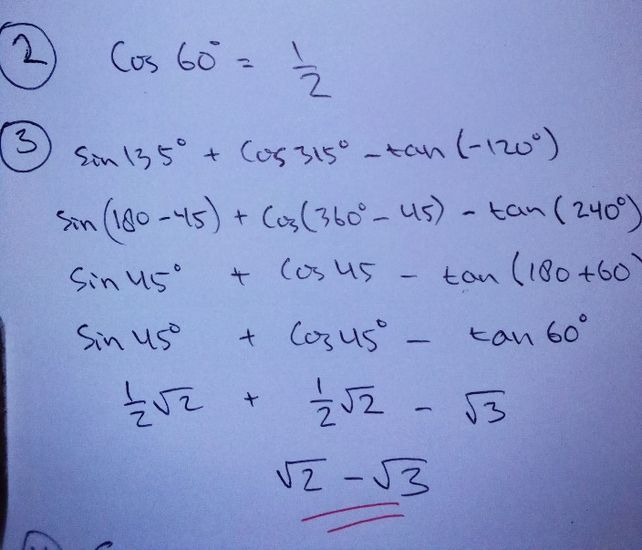 2 Cos 60° = 1/2
3 Sin 135° + Cos 315° - tan (-120°)
Sin (180 - 45) + Cos (360° - 45) - tan (240°)
Sin 45° + Cos 45 - tan (180 + 60)
Sin 45° + Cos 45° - tan 60°
1/2 √2 + 1/2 √2 - √3
√2 - √3